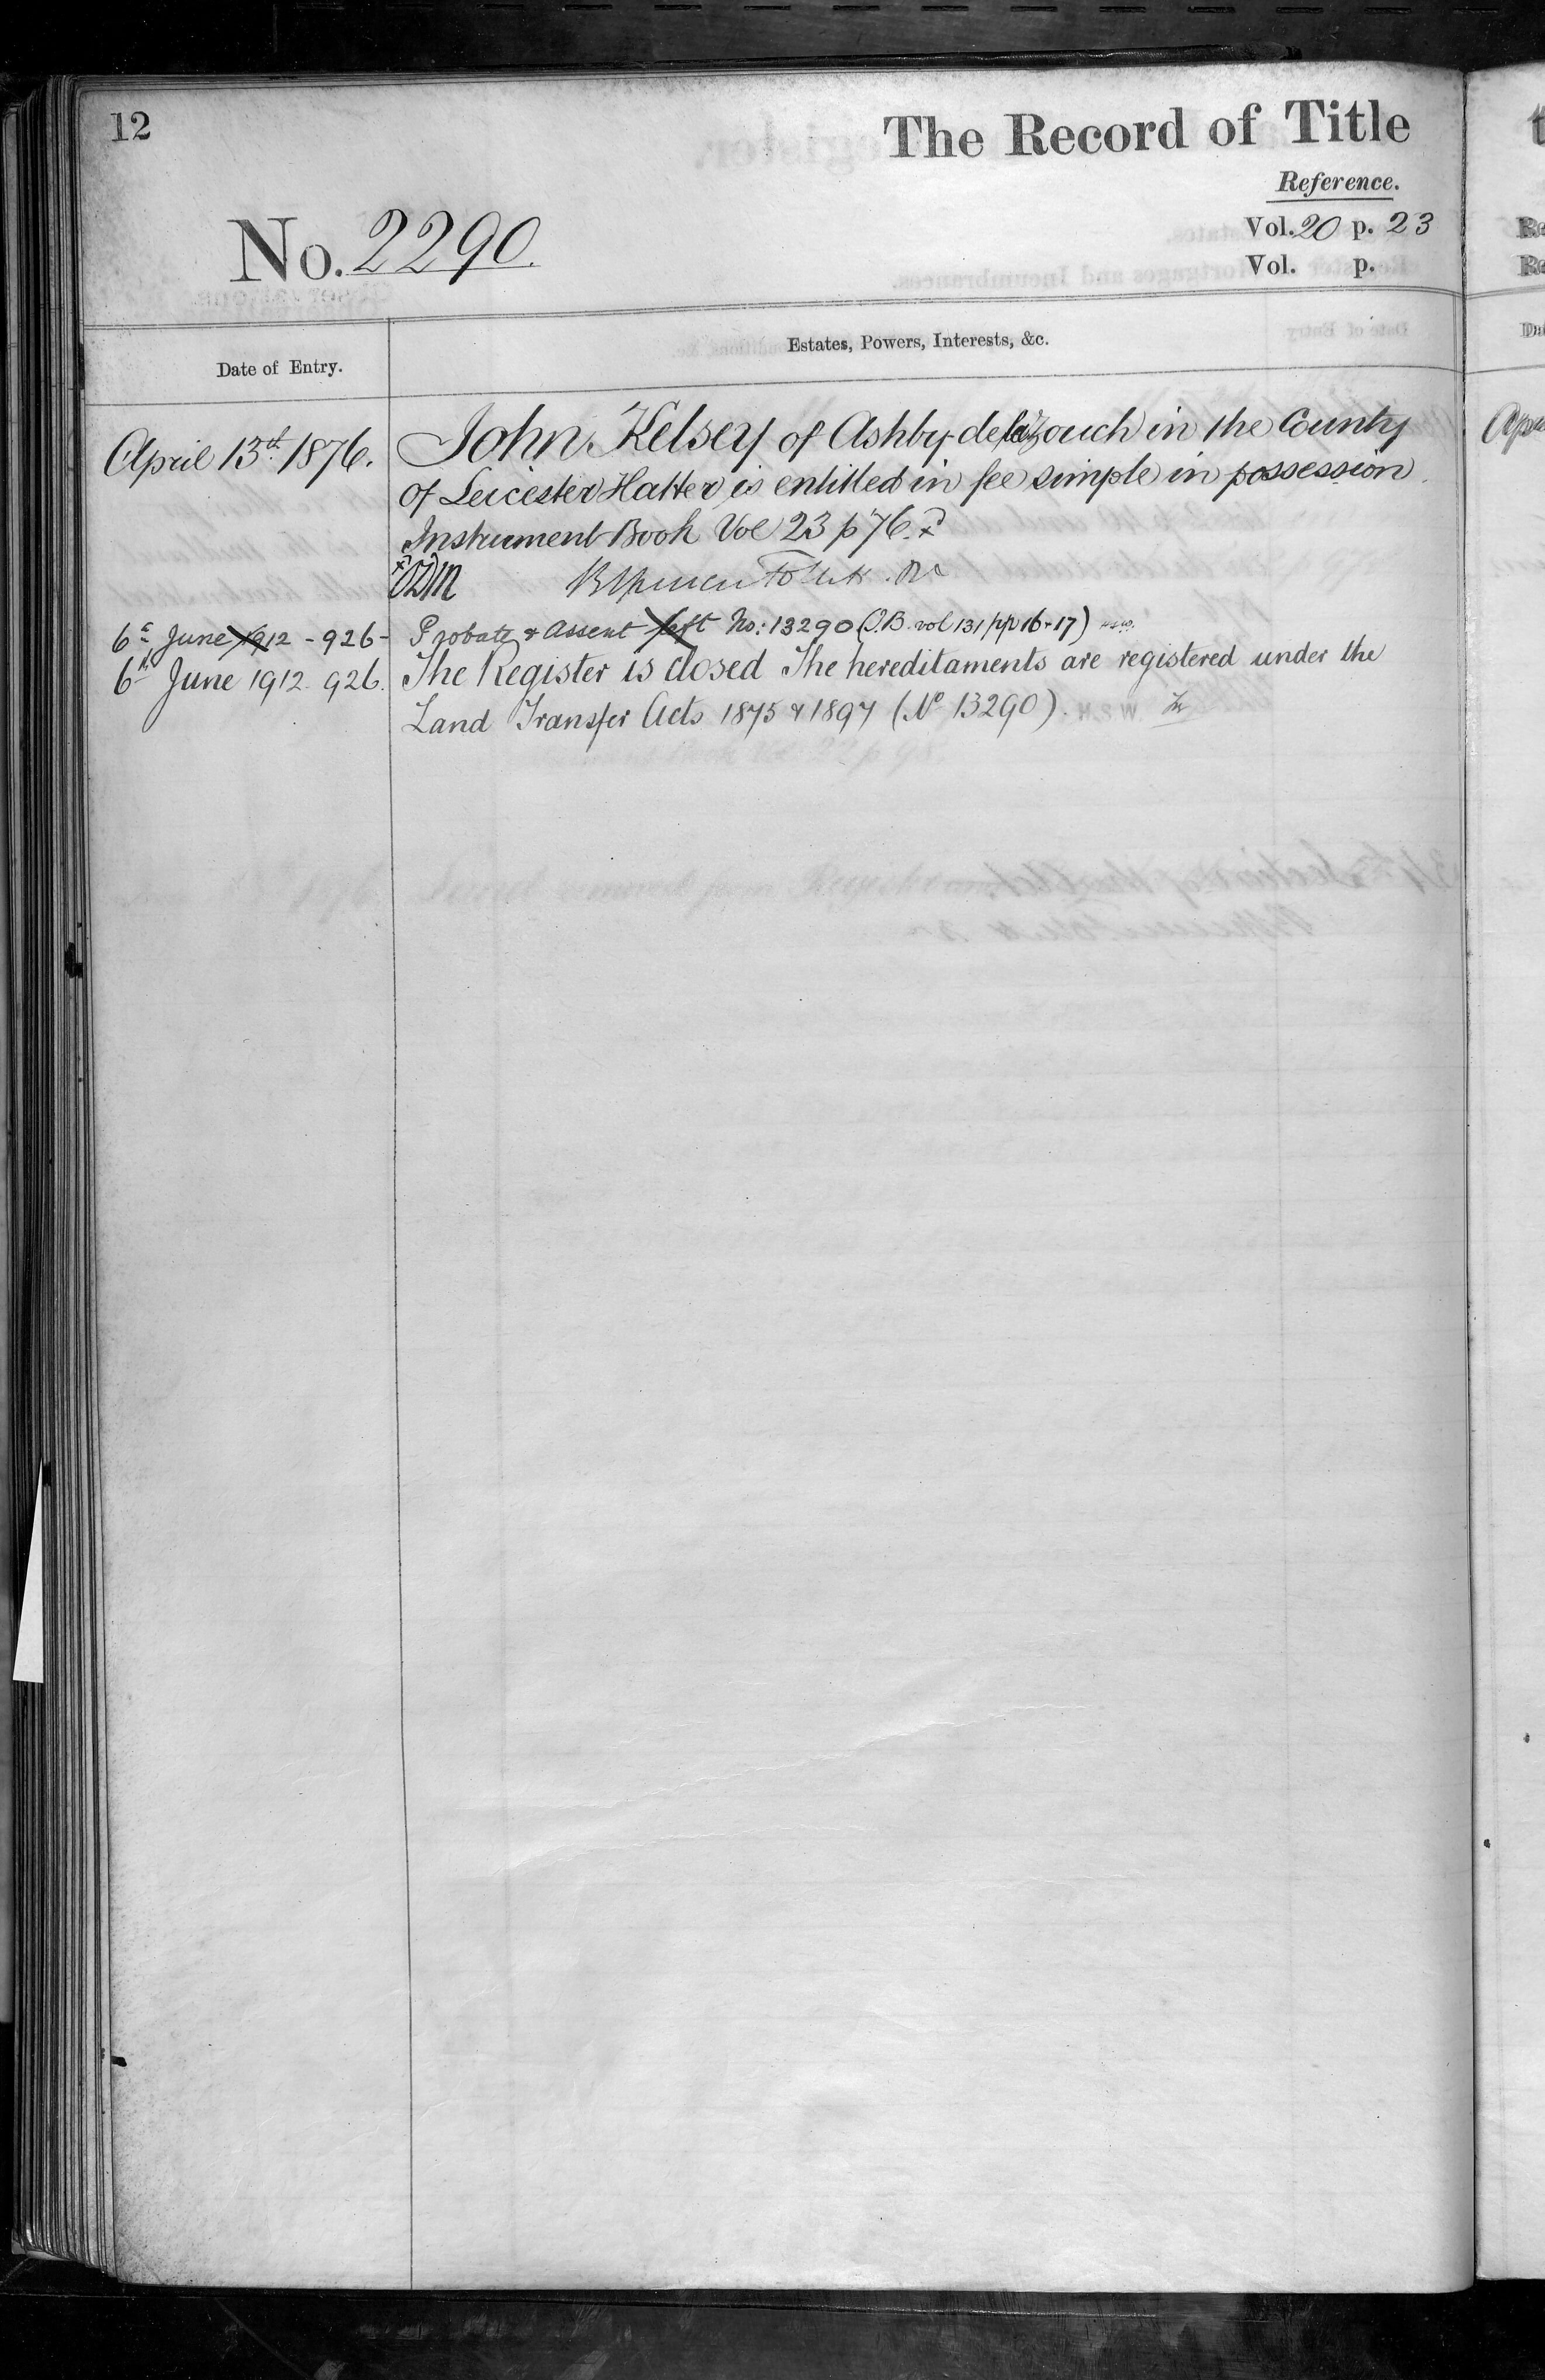 12
The Record of Title
Reference.
No. 2290.
Vol. 20 p. 23
Vol. p.
Date of Entry.
Estates, Powers, Interests, &c.
April 13th 1876.
John Kelsey of Ashby de la Zouch in the County
of Leicester Hatter is entitled in fee simple in possession
Instrument Book Vol 23 p 76.
6th June 1912 - 926 -
Probate & Assent No: 13290 (O.B. vol 131 pp 16-17)
6th June 1912. 926.
The Register is closed The hereditaments are registered under the
Land Transfer Acts 1875 & 1897 (No 13290).